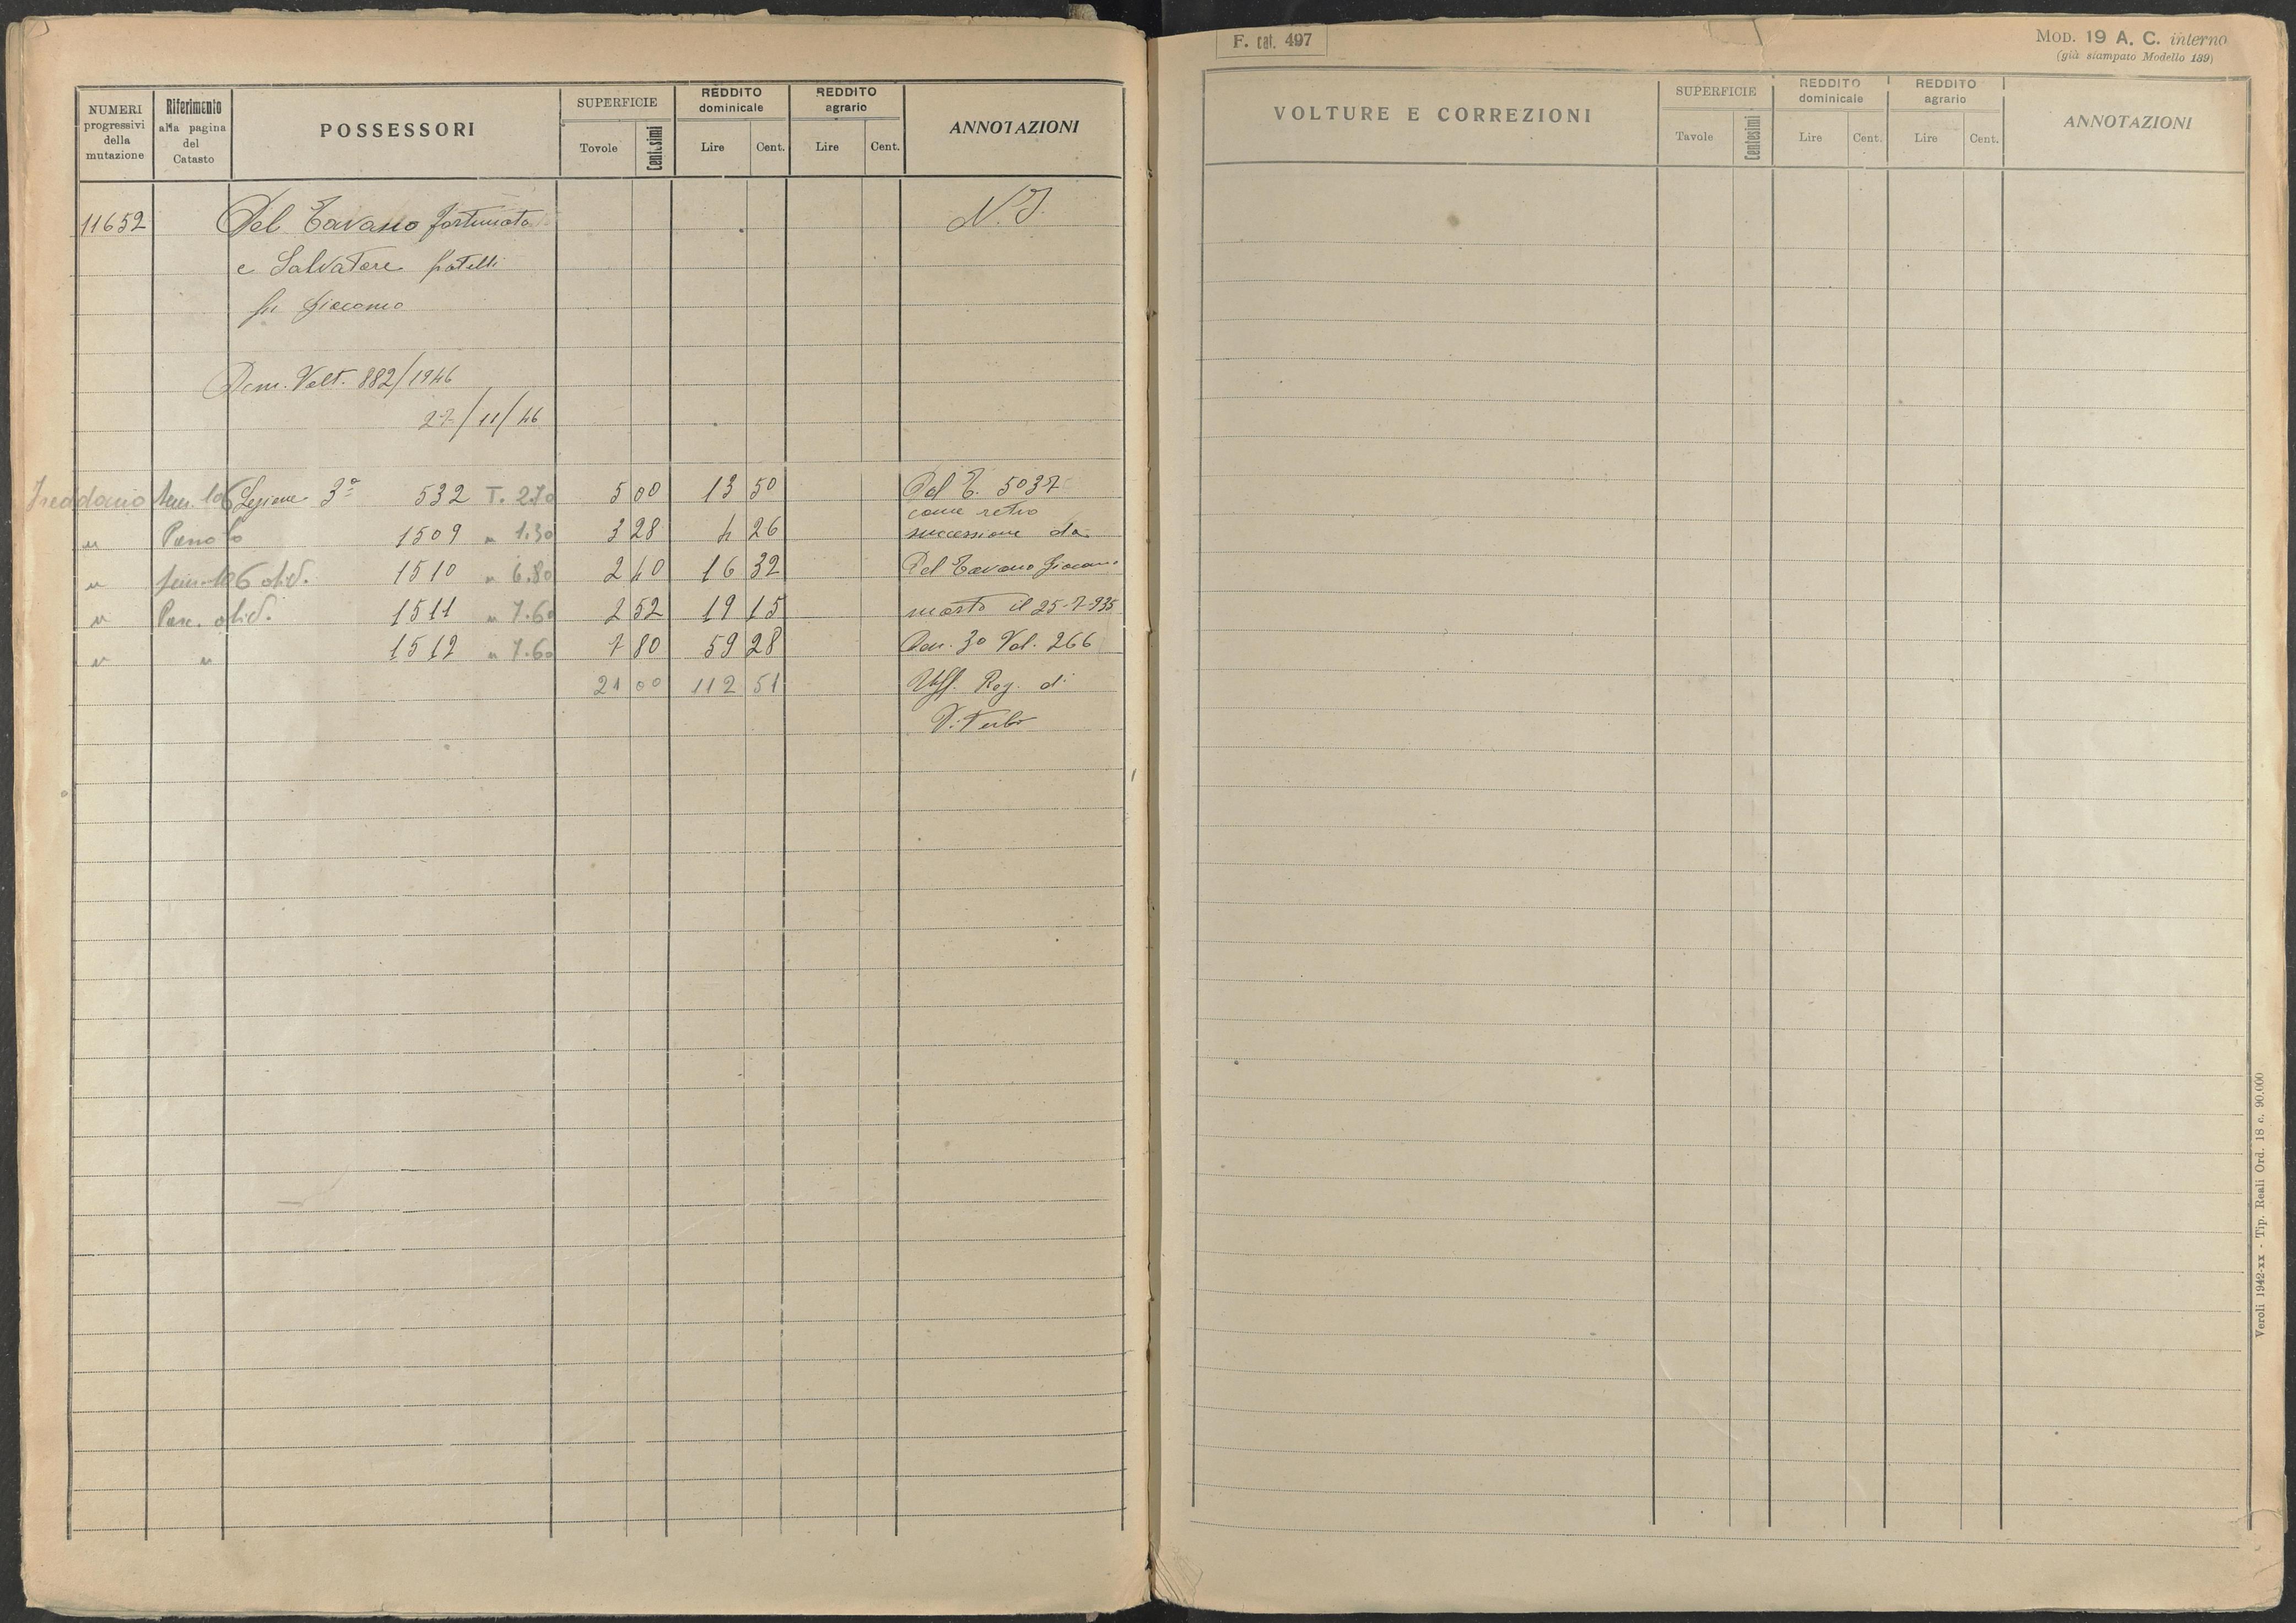 NUMERI progressivi della mutazione
Riferimento alla pagina del Catasto
POSSESSORI
SUPERFICIE
Tovole Centesimi
REDDITO dominicale
Lire Cent.
REDDITO agrario
Lire Cent.
ANNOTAZIONI
11652 Del Tavano Fortunato N.I.
e Salvatore fratelli
fu Giacomo
Dem. Volt. 882/1946
27/11/46
Freddano Sem. Sezione 3ª 532 T. 2.70 5 00 13 50 Dal T. 5037
come retro
" 1509 " 1.30 3 28 4 26 successione da
" olid. 1510 " 6.80 2 40 16 32 Del Tavano Giacomo
" Pasc. olid. 1511 " 7.60 2 52 19 15 morto il 25-7-935
" " 1512 " 7.60 7 80 59 28 Den. 30 Vol. 266
21 00 112 51 Uff. Reg. di
Viterbo
F. cat. 497
MOD. 19 A. C. interno
(già stampato Modello 189)
VOLTURE E CORREZIONI
SUPERFICIE
Tavole Centesimi
REDDITO dominicale
Lire Cent.
REDDITO agrario
Lire Cent.
ANNOTAZIONI
Veroli 1942-XX - Tip. Reali Ord. 18 c. 90.000